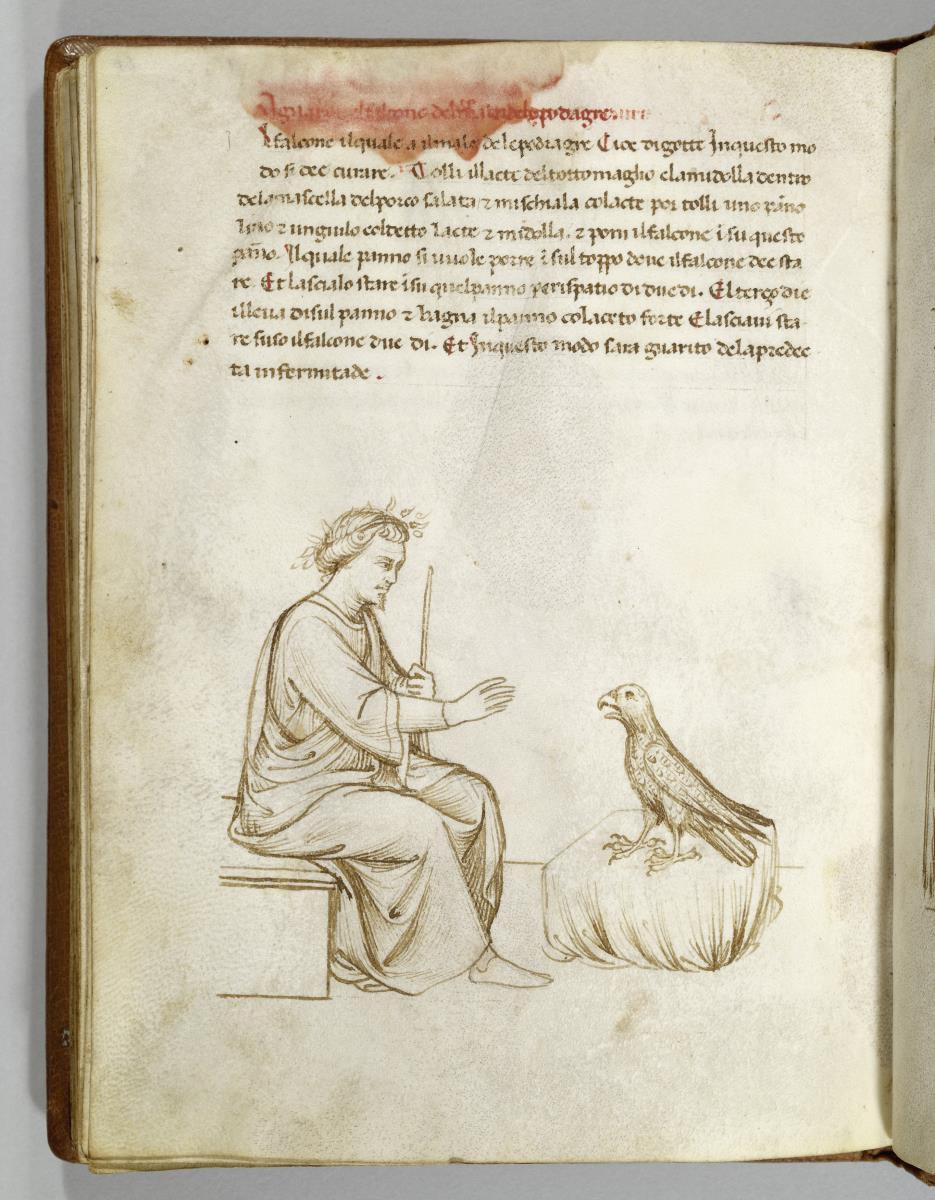 A guarire el falcone del male dele podagre.
Il falcone il quale a il male dele podragre Cioe di gotte Inquesto mo
do si dee curare. Tolli il lacte del tottomaglio e la midolla dentro
dela mascella del porco salata ⁊ mischiala co lacte poi tolli uno pãno
lino ⁊ unguilo col detto lacte ⁊ midolla. ⁊ poni il falcone ĩ su questo
pãno. Il quale panno si uuole porre ĩ sul toppo doue il falcone dee sta
re. Et lascialo stare ĩ su quel panno per ispatio di due di. El terço die
il leua di sul panno ⁊ bagna il panno col aceto forte E lasciaui sta
re suso il falcone due di. Et Inquesto modo sara guarito dela predec
ta infermitade.